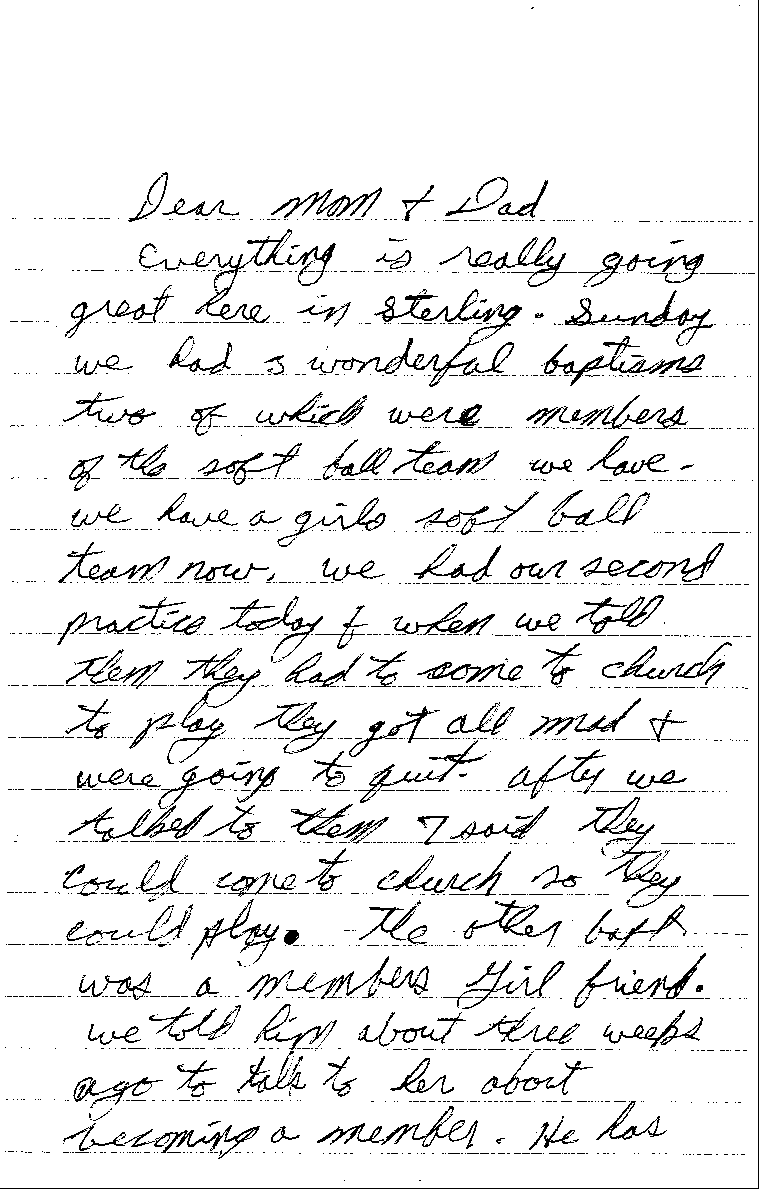 Dear Mom & Dad
Everything is really going
great here in Sterling. Sunday
we had 3 wonderful baptisms
two of which were members
of the soft ball team we have.
we have a girls soft ball
team now. we had our second
practice today & when we told
them they had to come to church
to play they got all mad &
were going to quit. after we
talked to them I said they
could come to church so they
could play. The other bapt
was a members Girl friend.
we told him about three weeks
ago to talk to her about
becoming a member. He has